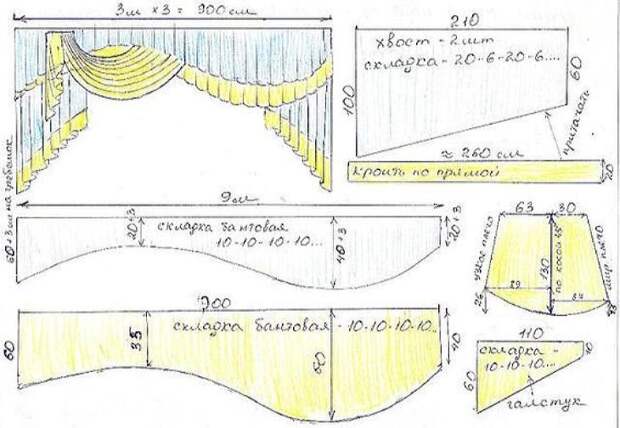 3м x 3 = 900 см
210
хвост - 2 шт
складка - 20-6-20-6....
60
100
притачать
≈ 260 см
кроить по прямой
20
9м
60+3 см на гребешок
складка бантовая
10-10-10-10...
20+3
40+3
20+3
63
30
узкое плечо
130
по косой 45°
29
34
26
900
складка бантовая - 10-10-10-10..
60
35
40
110
складка -
10-10-10....
10
60
галстук